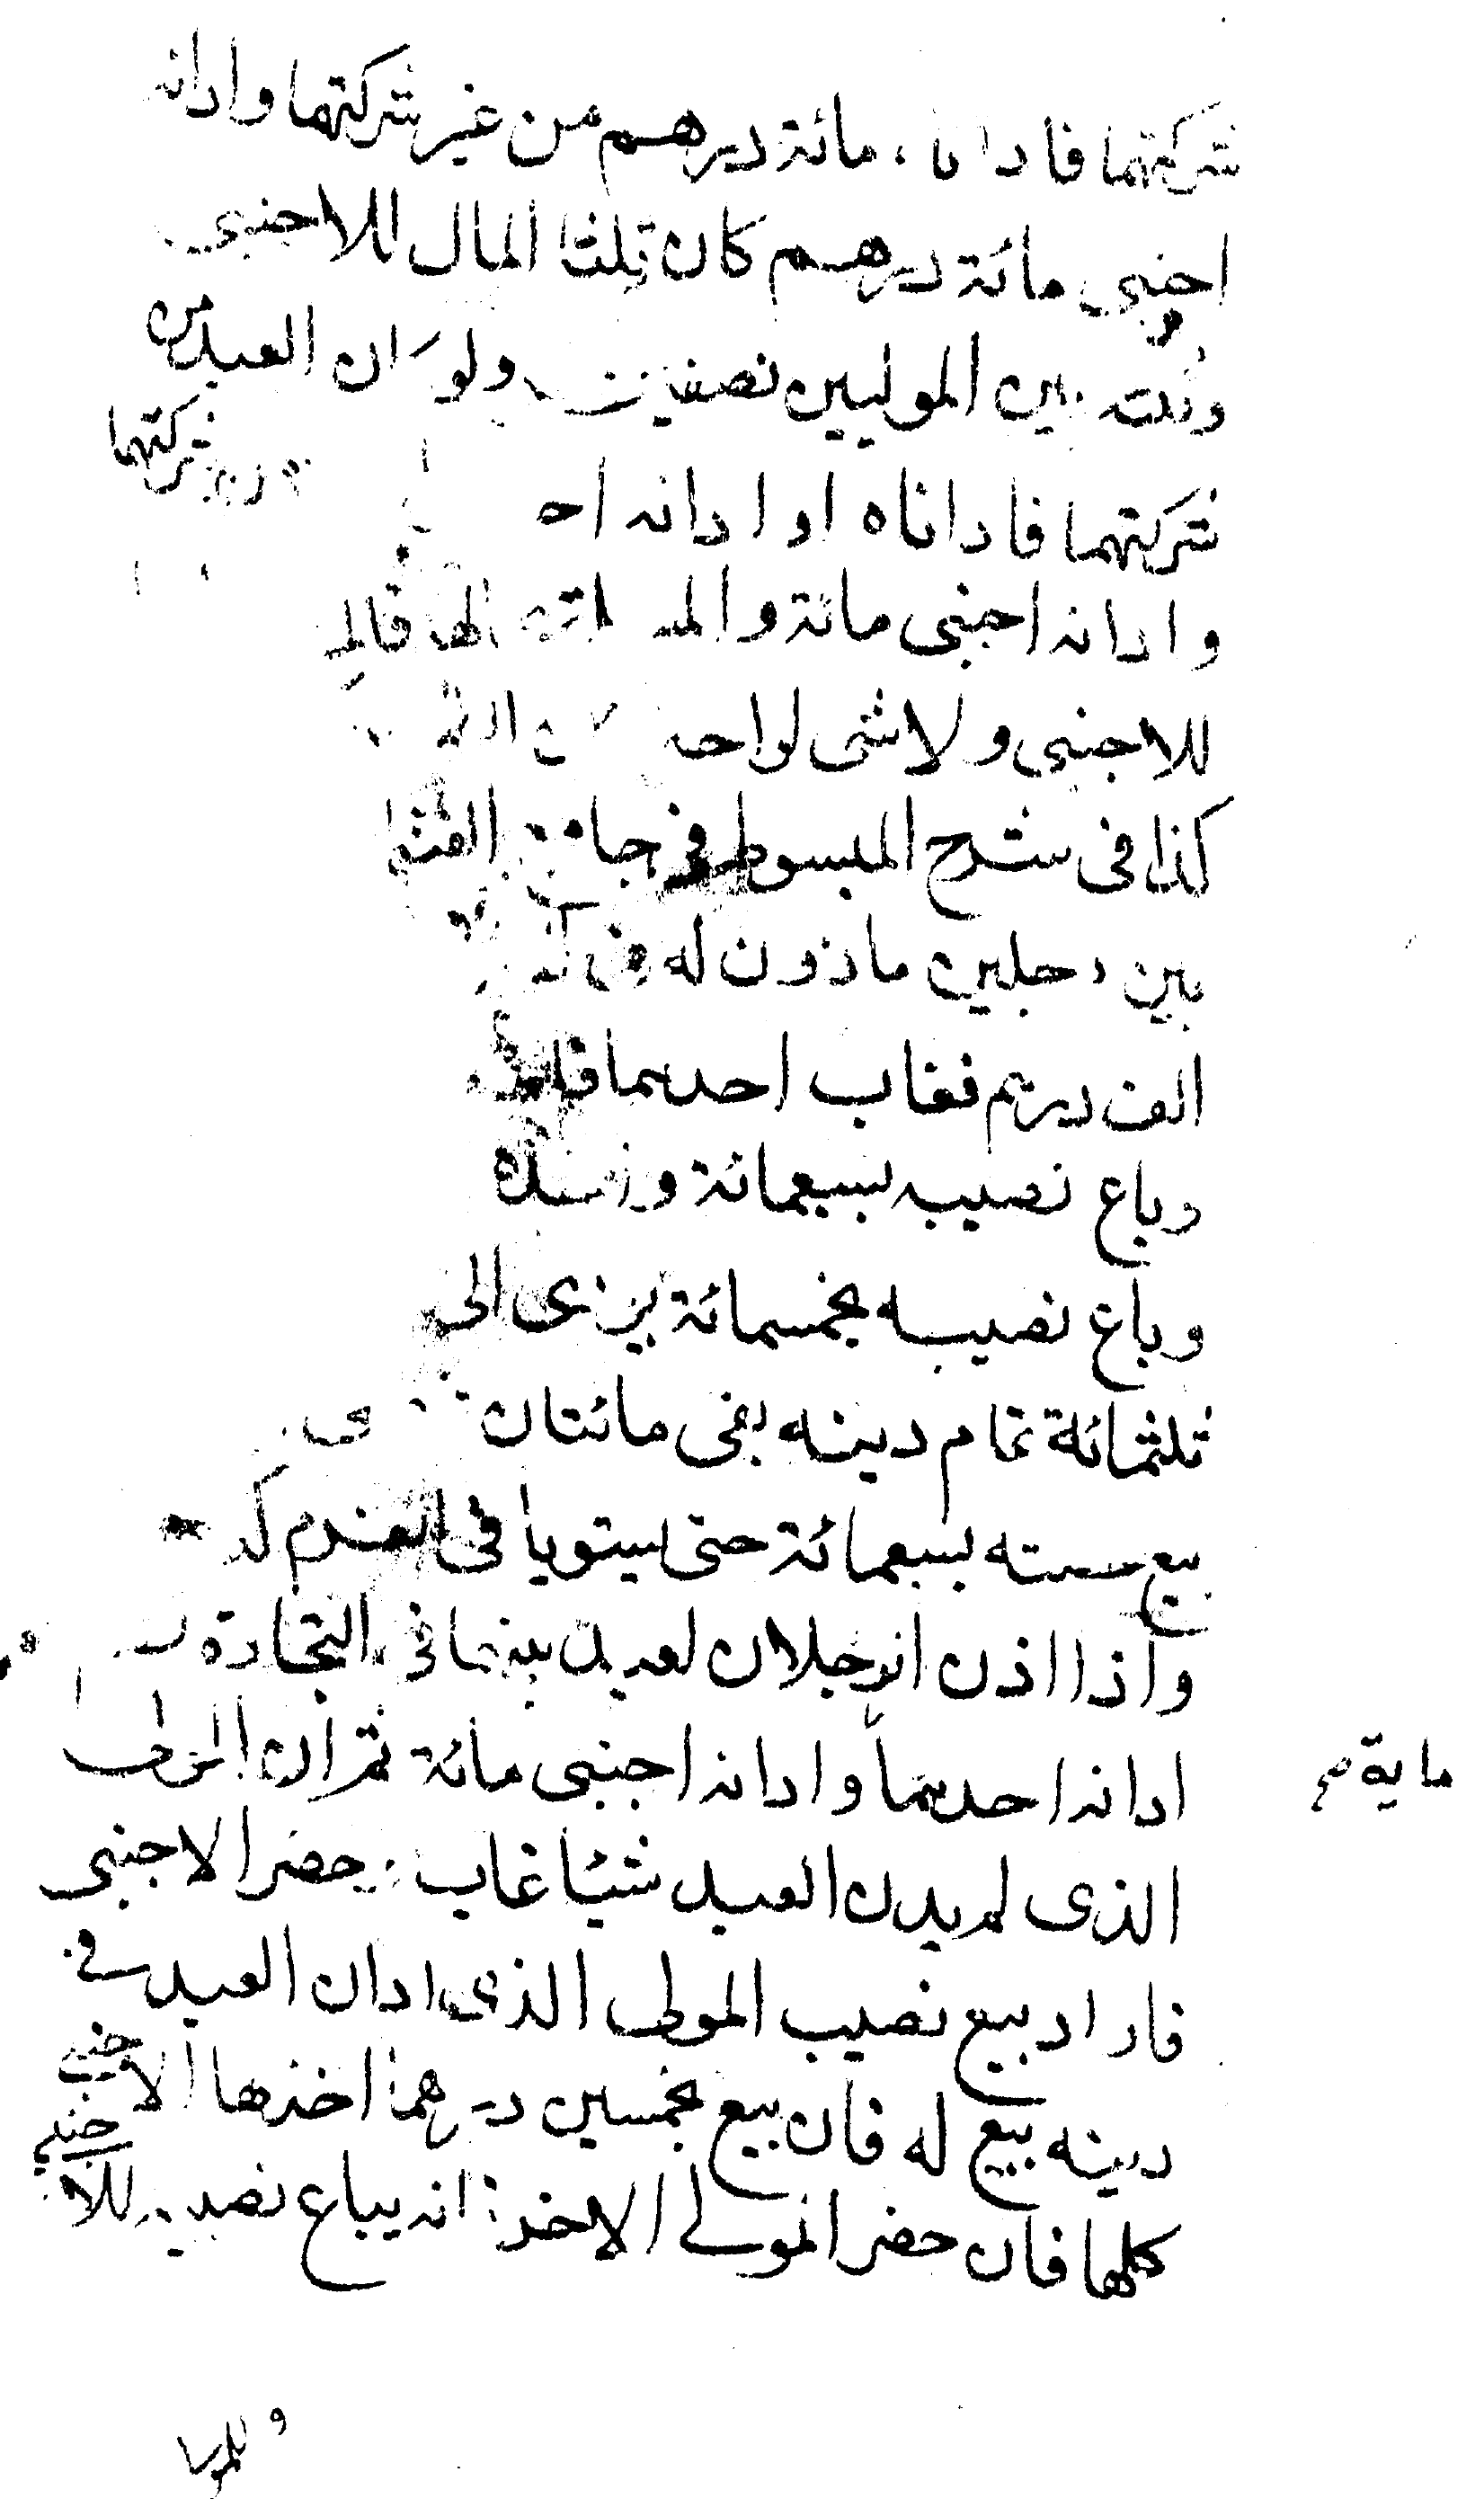 شركتهما فاداناه مائة درهم من غير شركتهما وادانه
اجنبى مائة درهم كان ثلثا المال للاجنبى
وثلثه بين الموليين نصفين ولو كان العبد من
شركتهما فاداناه او ادانه شركتهما
وادانه اجنبى مائة
للاجنبى ولا شى لواحد
كذا فى شرح المبسوط فى جامع
بين رجلين ماذون له
الف درهم فغاب احدهما
وباع نصيبه بسبعمائة
وباع نصيبه بخمسمائة الى
ثلثمائة تمام دينه بقى مائتان
بيع بسبعمائة حتى يستويا فى الغرم
واذا اذن الرجلان لعبد بينهما فى التجارة
ادانه احدهما وادانه اجنبى مائة ثم ان المولى
ماية صح
الذى لم يدن العبد شيئا غاب وحضر الاجنبى
فاراد بيع نصيب المولى الذى ادان العبد فى
دينه بيع له فان بيع بخمسين درهما اخذها الاجنبى
كلها فان حضر المولى الاخر انه يباع نصيبه للاجنبى